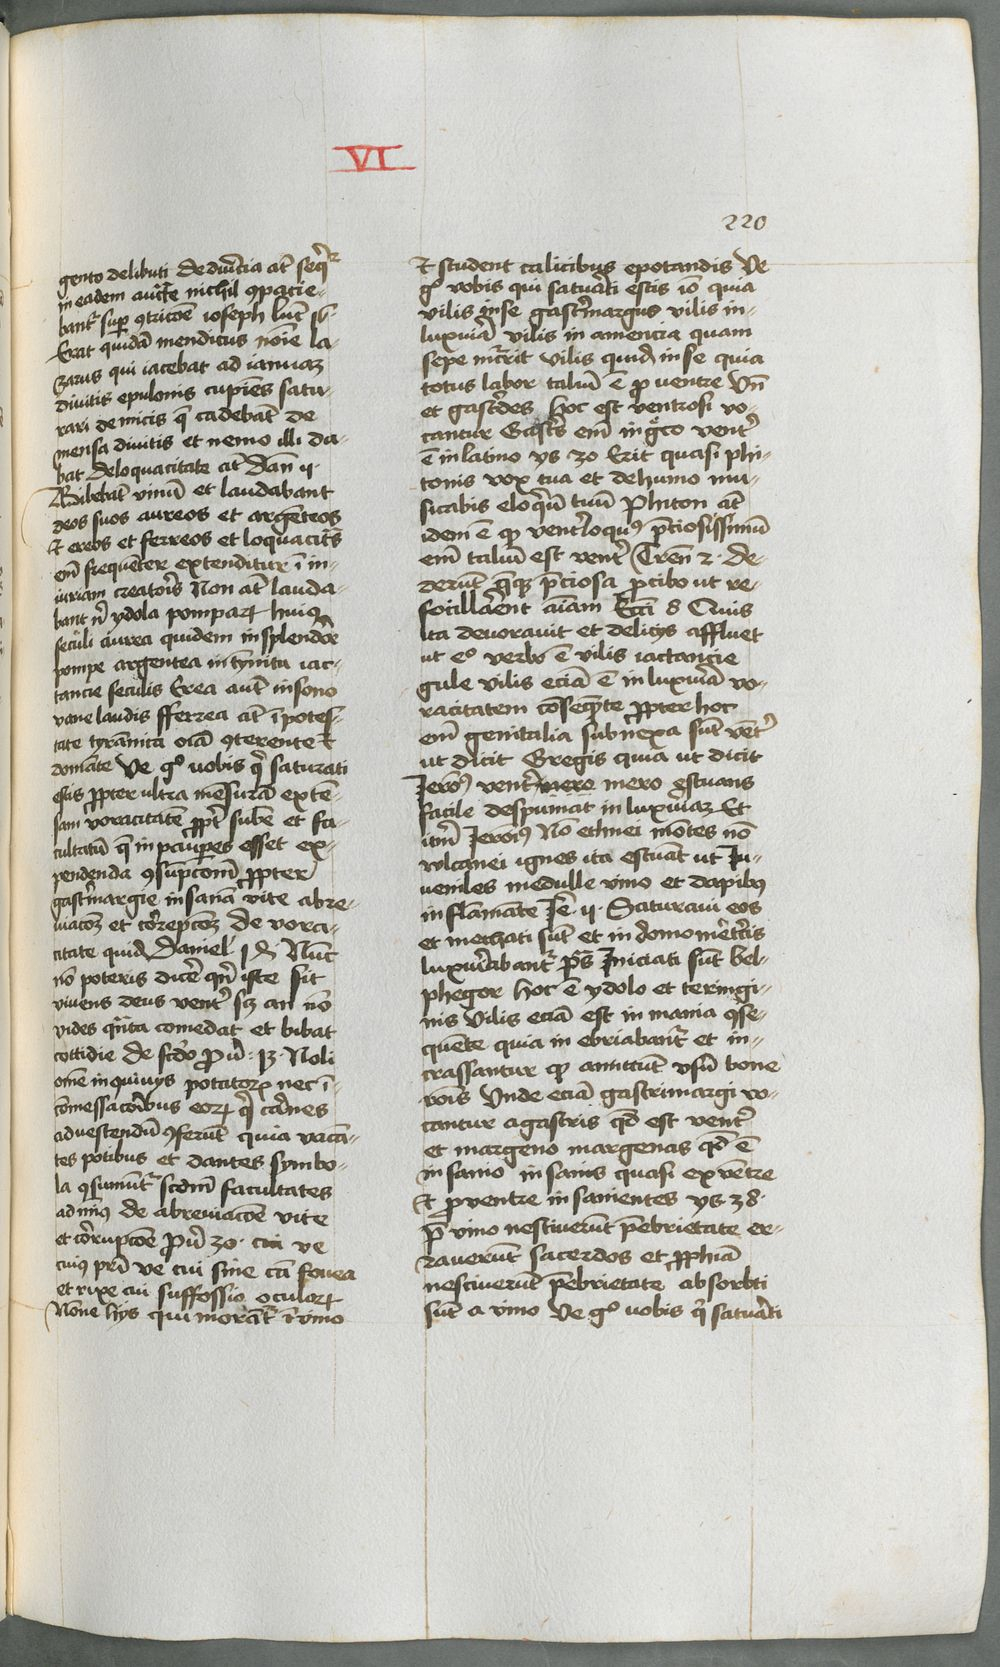 VI
220
gento delibuti de duicia at̄ seqr̄
in eadem auctē nichil ꝯpacie-
bantr̄ sup ꝯtricōē ioseph luc̄ 16
Erat quidā mendicus nōīe la-
zarus qui iacebat ad ianuaꝫ
diuitis epulonis cupiēs satu-
rari de micis q̄ cadebāt de
mensa diuitis et nemo illi da-
bat deloquacitate at̄ Dān ij·
Bibebāt vinū et laudabant
deos suos aureos et argēteos
Et ereos et ferreos et loquacitas
em̄ frequēter extenditur ī in-
iuriam creatoris Non at̄ lauda-
bant n̄ ydola pomparꝝ huiꝰ
seculi aurea quidem in splendore
pompe argentea in tīnitu iac-
tancie seculis Erea aut̄ in sono
vane laudis fferrea at̄ ī potes-
tate tyrānica oīā ꝯterente et
domāte Ve gͦ uobis q̄ saturati
estis ꝓpter ultra mēsurā extē-
sam voracitatē ꝓpt̄ subē et fa-
cultatū q̄ in paupes esset ex-
pendenda ꝯsūpcōm̄ ꝓpter
gastrimargie insanā vite abre-
uiacōꝫ et corrupcōꝫ de vora-
citate quidē Daniel 14 Nūc
nō poteris dicē qn̄ iste sit
viuens deus ventr̄ sꝫ an nō
vides qn̄ta comedat et bibat
cottidie de scd̄o Puͥ· 13· Noli
ōē in ꝯuiuijs potatorꝝ nec ī
cōmessacōībus eorꝝ q̄ carnes
ad vescendū ꝯferūt quia vacā-
tes potibus et dantes symbo-
la ꝯsumūtr̄ scdm̄ facultates
ad imiꝰ de abreuiacōē vite
et corrupcōē Puͥ 30· cui ve
cuiꝰ pri ve cui sine cā fouea
et rixe cui suffossio oculorꝝ
Nōne hijs qui morātr̄ ī vino
Et student calicibus epotandis Ve
gͦ vobis qui saturati estis iō quia
vilis in se gastrimargus vilis in-
luxuriā vilis in amencia quam
sepe incrrit vilis quidē in se quia
totus labor taliū ē pro ventre Vn̄
et gastrides hoc est ventrosi vo-
cantur Gastˢ em̄ in gͤco ventr̄
ē in latino ys 30 Erit quasi phi-
tonis vox tua et de humo mu-
sitabis eloqͥū tuū Phiton at̄
idem ē qͩ ventˡloquꝰ p̄ciosissimū
em̄ taliū est ventr̄ Tren̄ 2· de-
derūt q̄qꝫ p̄ciosa pro cibo ut re-
focillarent aīam Ecci 8 Quis
ita deuorauit et delicijs affluet
ut eͦ verbo ē vilis iactancie
gule vilis eciā ē in luxuriā vo-
racitatem cōseqͥte ꝓpter hoc
em̄ genitalia subnexa sūt vētˡ
ut dicit Gregis quia ut dicit
Jeroꝰ ventr̄ mero mero estuans
facile despumat in luxuriaꝫ Et
itm̄ Jeroīꝰ Nō ethnei mōtes nō
vulcanei ignes ita estuāt ut Ju-
ueniles medulle vino et dapibꝰ
inflāmate Je 5 Saturaui eos
et mechati sūt et in domo meretˡcis
luxuriabantr̄ p̄s Iniciati sūt bel-
phegor hoc ē ydolo et teringi-
nis Vilis eciā est in mania ꝯse-
quēte quia in ebriabantr̄ et in-
crassantur qͩ amittūt vsū bone
rōīs Unde eciā gastrimargi vo-
cantur a gastris qd̄ est ventˡ
et margeno margenas qd̄ ē
insanio insanis quasi ex vētre
Et pro ventre insanientes ys· 28·
p̄ vino nescierūt p̄ ebrietate er-
rauerūt sacerdos et ꝓphā
nesciuerūt p̄ ebrietate absorbti
sūt a vino Ve gͦ uobis qͥ saturati